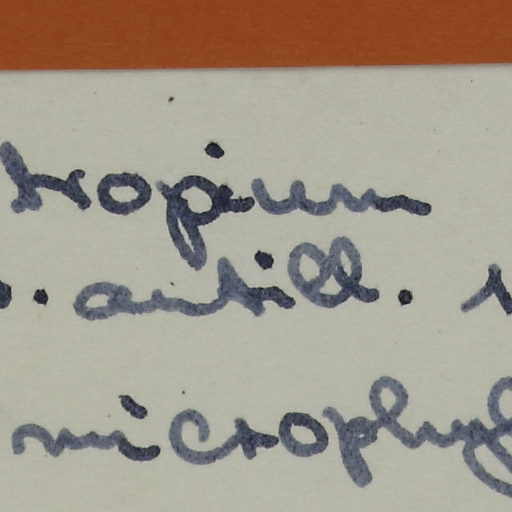 tropium
. antill.
microphy